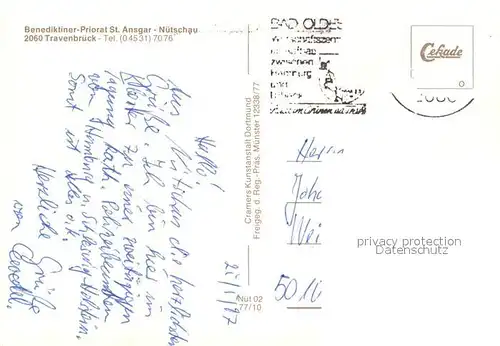 Benediktiner-Priorat St. Ansgar - Nütschau
2060 Travenbrück - Tel. (0 45 31) 70 76
BAD OLDES
zwischen
Hamburg
und
Lübeck
Cekade
Hallo!
Aus Nütschau die herzlichsten
Grüße. Ich bin hier im
Kloster zu einer zweitägigen
Tagung kath. Polizeibeamten
von Hamburg u. Schleswig-Holstein.
Sonst ist alles o.k.
Herzliche Grüße
von
Cramers Kunstanstalt Dortmund
Freigeg. d. Reg.-Präs. Münster 12938/77
Nüt 02
77/10
Herrn
5016
privacy protection
AnsichtskartenVersand.com